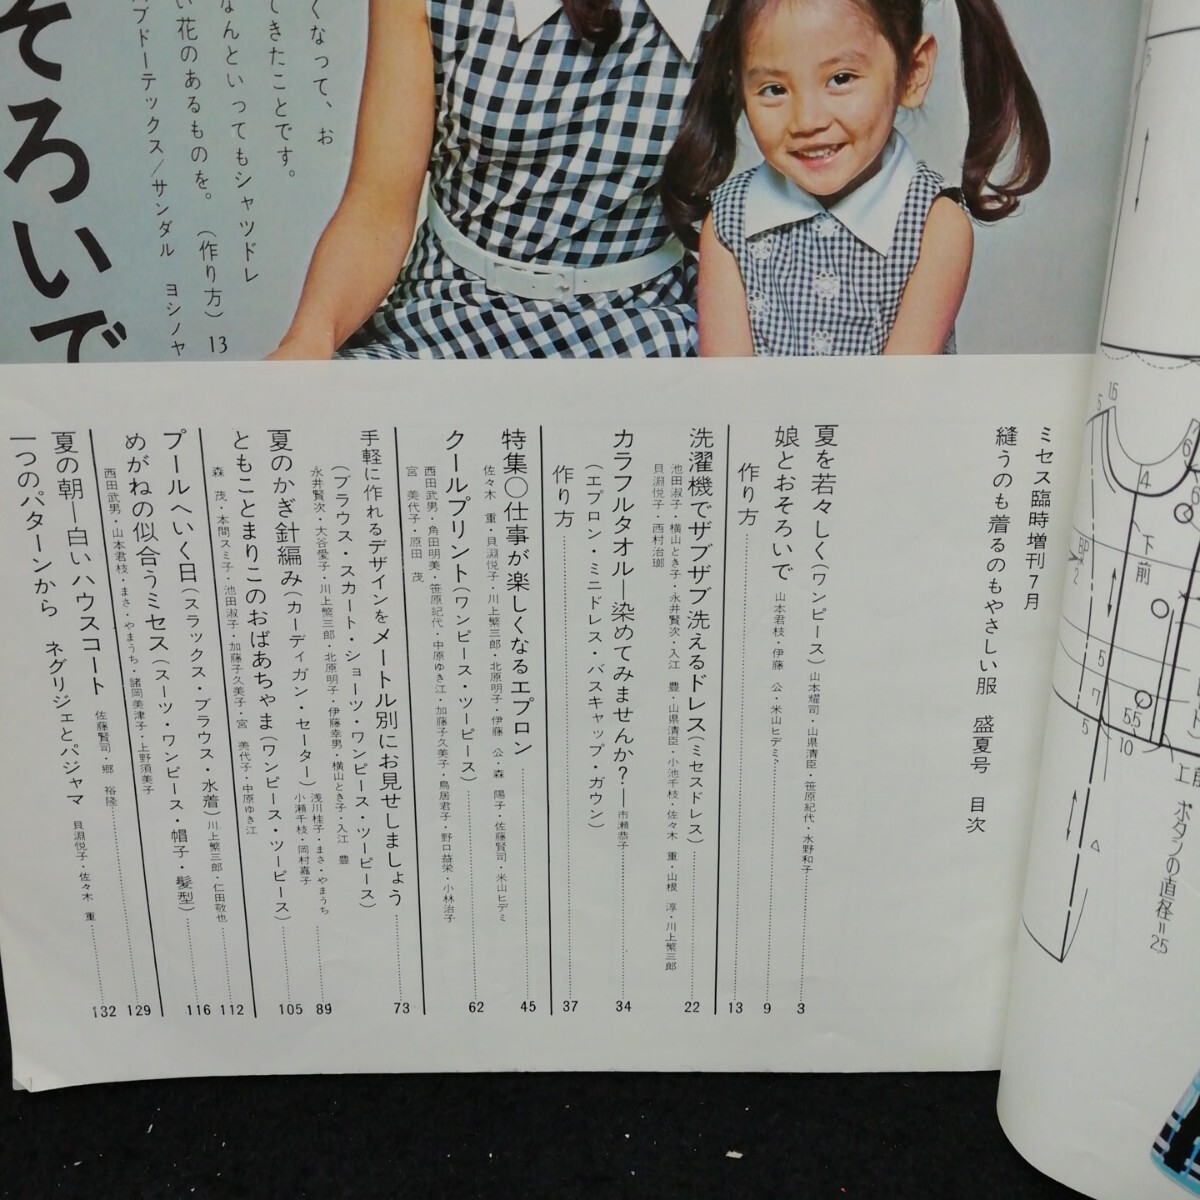 くなって、お
てきたことです。
なんといってもシャツドレ
い花のあるものを。(作り方)13
プドーテックス/サンダル　ヨシノヤ
そろいで
ミセス臨時増刊7月
縫うのも着るのもやさしい服　盛夏号　目次
夏を若々しく(ワンピース)山本耀司・山県清臣・笹原紀代・水野和子 3
娘とおそろいで　山本君枝・伊藤　公・米山ヒデミ 9
作り方 13
洗濯機でザブザブ洗えるドレス(ミセスドレス) 22
池田淑子・横山とき子・永井賢次・入江　豊・山県清臣・小池千枝・佐々木　重・山根　淳・川上繁三郎
貝淵悦子・西村治瑯
カラフルタオル—染めてみませんか?—市瀬恭子 34
(エプロン・ミニドレス・バスキャップ・ガウン)
作り方 37
特集○仕事が楽しくなるエプロン 45
佐々木　重・貝淵悦子・川上繁三郎・北原明子・伊藤　公・森　陽子・佐藤賢司・米山ヒデミ
クールプリント(ワンピース・ツーピース) 62
西田武男・角田明美・笹原紀代・中原ゆき江・加藤子久美子・鳥居君子・野口益栄・小林治子
宮　美代子・原田　茂
手軽に作れるデザインをメートル別にお見せしましょう 73
(ブラウス・スカート・ショーツ・ワンピース・ツーピース)
永井賢次・大谷愛子・川上繁三郎・北原明子・伊藤幸男・横山とき子・入江　豊
浅川桂子・まさ・やまうち 89
夏のかぎ針編み(カーディガン・セーター)小瀬千枝・岡村嘉子
ともことまりこのおばあちゃま(ワンピース・ツーピース) 105
森　茂・本間スミ子・池田淑子・加藤子久美子・宮　美代子・中原ゆき江
プールへいく日(スラックス・ブラウス・水着)川上繁三郎・仁田敬也 112
めがねの似合うミセス(スーツ・ワンピース・帽子・髪型) 116
西田武男・山本君枝・まさ・やまうち・諸岡美津子・上野須美子
夏の朝—白いハウスコート　佐藤賢司・郷　裕隆 129
一つのパターンから　ネグリジェとパジャマ　貝淵悦子・佐々木　重 132
5
15
5
4
6
下前
BP
2
5
7
5.5
5
10
上前
ボタンの直径=2.5